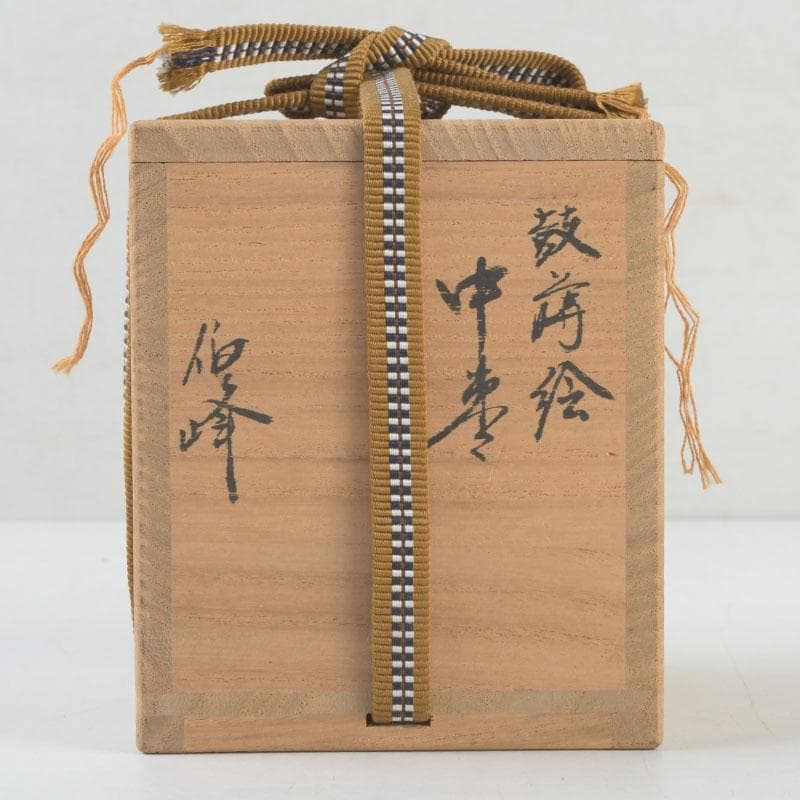 鼓蒔絵
中棗
伯峰